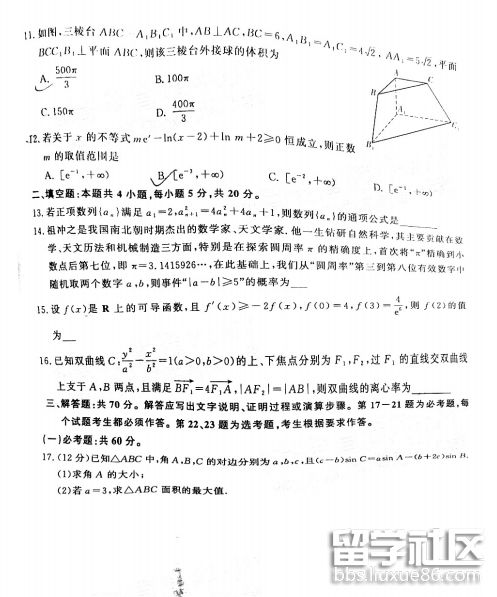 11.如图,三棱台 ABC-A₁B₁C₁ 中,AB⊥AC,BC=6,A₁B₁=A₁C₁=4√2, AA₁=5√2,平面
BCC₁B₁⊥平面 ABC,则该三棱台外接球的体积为
A. 500π/3 B. 100π
C. 150π D. 400π/3
A
C
B
A₁
B₁
12.若关于 x 的不等式 meˣ-ln(x-2)+ln m+2≥0 恒成立,则正数
m 的取值范围是
A. [e⁻¹,+∞) B. [e⁻³,+∞) C. [e⁻²,+∞) D. [e,+∞)
二、填空题:本题共 4 小题,每小题 5 分,共 20 分。
13.若正项数列{aₙ}满足 a₁=2,a²ₙ₊₁=4a²ₙ+4aₙ+1,则数列{aₙ}的通项公式是
14.祖冲之是我国南北朝时期杰出的数学家、天文学家.他一生钻研自然科学,其主要贡献在数
学、天文历法和机械制造三方面,特别是在探索圆周率 π 的精确度上,首次将“π”精确到小
数点后第七位,即 π=3.1415926…,在此基础上,我们从“圆周率”第三到第八位有效数字中
随机取两个数字 a,b,则事件“|a-b|≥5”的概率为
15.设 f(x)是 R 上的可导函数,且 f′(x)≥-2f(x),f(0)=4,f(3)=4/e⁶,则 f(2)的值
为
16.已知双曲线 C:y²/a²-x²/b²=1(a>0,b>0)的上、下焦点分别为 F₁,F₂,过 F₁ 的直线交双曲线
上支于 A,B 两点,且满足 BF₁=4F₁A,|AF₂|=|AB|,则双曲线的离心率为
三、解答题:共 70 分。解答应写出文字说明、证明过程或演算步骤。第 17~21 题为必考题,每
个试题考生都必须作答。第 22、23 题为选考题,考生根据要求作答。
(一)必考题:共 60 分。
17.(12 分)已知△ABC 中,角 A,B,C 的对边分别为 a,b,c,且(c-b)sin C=asin A-(b+2c)sin B.
(1)求角 A 的大小;
(2)若 a=3,求△ABC 面积的最大值.
留学社区
bbs.liuxue86.com